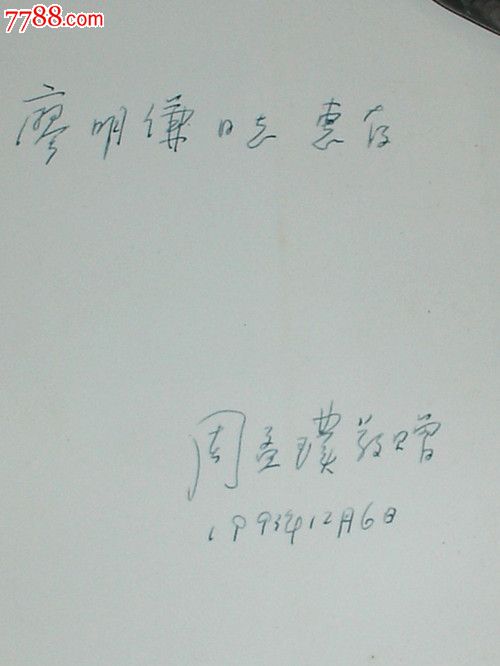 7788.com
火红年代
廖明谦同志 惠存
周孟璞敬赠
1993年12月6日